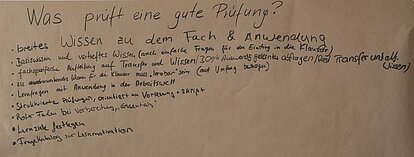 Was prüft eine gute Prüfung?
• breites Wissen zu dem Fach & Anwendung
• Basiswissen und vertieftes Wissen (auch einfache Fragen für den Einstieg in die Klausur)
• fachspezifische Aufteilung auf Transfer und Wissen / 30% Auswendiggelerntes abfragen / Rest Transfer und (Wissen)
• zu auswendiges Wissen für die Klausur muss „lernbar" sein (auf Umfang bezogen)
• Lernfragen mit Anwendung in der Arbeitswelt
• Strukturierte Prüfungen, orientiert an Vorlesung + Skript
• Rote Faden bei Vorbereitung „Essentials"
• Lernziele festlegen
• Fragekatalog zur Lernmotivation